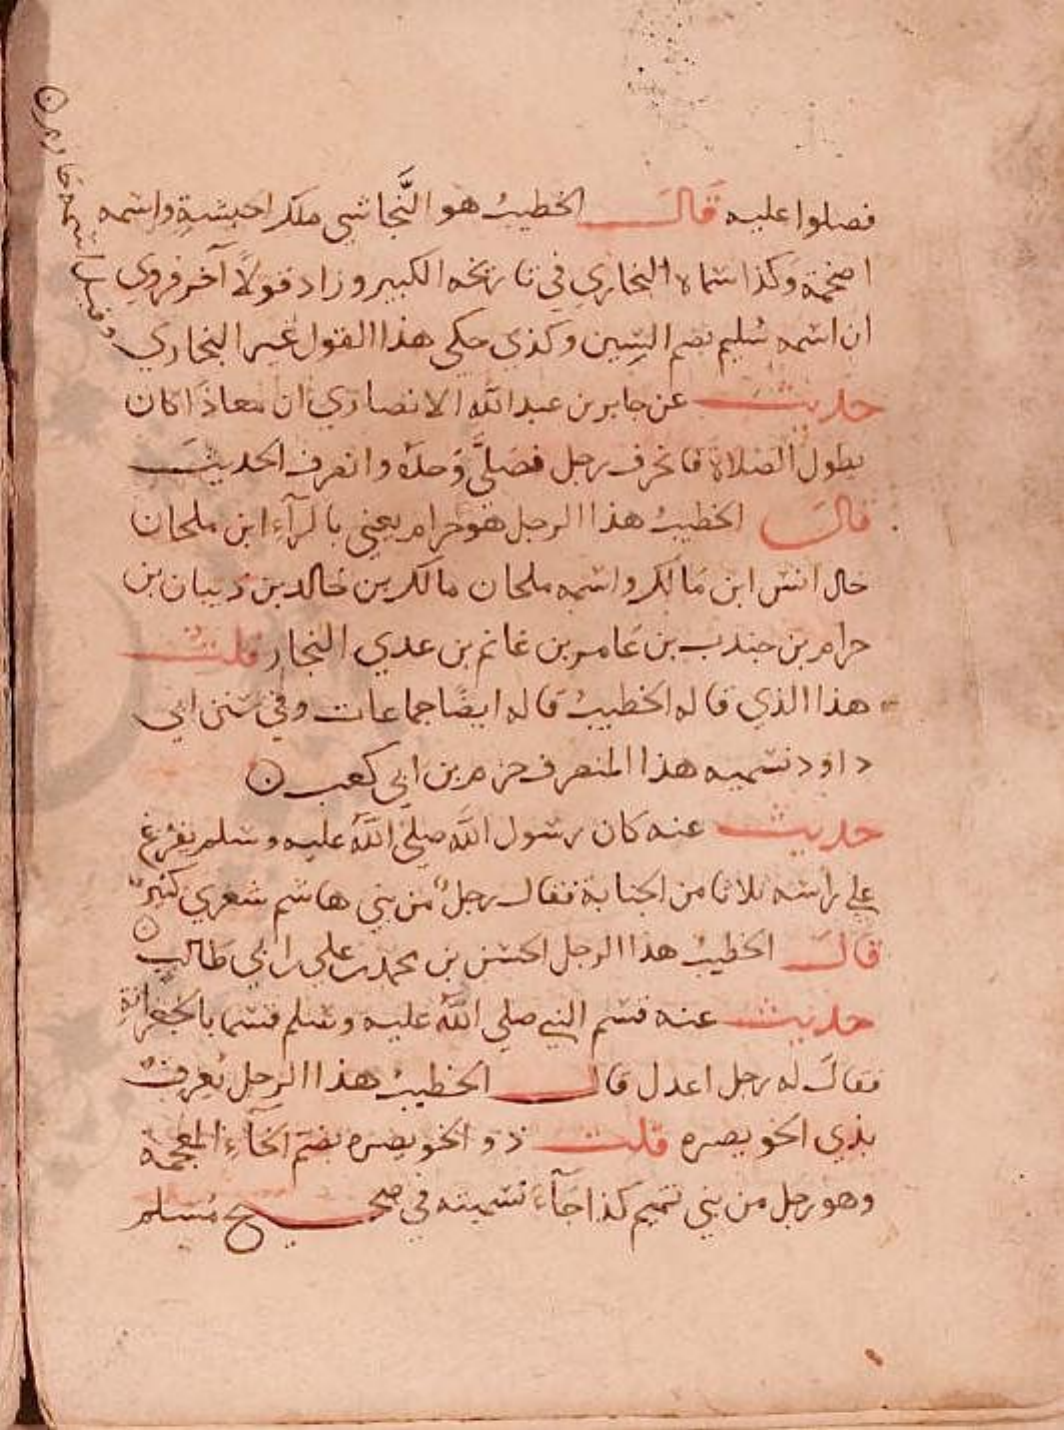 فصلوا عليه قالَ الخطيبُ هو النَّجاشي ملك الحبشةِ واسمه
اصحمة وكذا سماه البخاري في تاريخه الكبير وزاد قولاً آخر فروي
ان اسمه سُليم بضم السِين وكذي حكي هذا القول غير البخاري
حديث عن جابر بن عبد الله الانصاري ان معاذاً كان
يطول الصلاة فانحرف رجل فصلَّى وَحدَه وانصرف الحديث
قالَ الخطيبُ هذا الرجل هو حرام يعني بالرآءِ ابن ملحان
خال انس ابن مَالك واسمه ملحان مالك بن خالد بن زيبان بن
حرام بن جندب بن عَامر بن غانم بن عدي النجار قلتُ
هذا الذي قاله الخطيبُ قاله ايضًا جماعات وفي سنن ابي
داود تسميه هذا المنصرف حزم بن ابي كعب ن
حديث عنه كان رسُول اللَّه صلى اللَّه عليه وسلم يفرُغ
على راسه ثلاثا من الجنابة فقال رجلٌ من بني هاشم شعري كثيرٌ ن
قَالَ الخطيبُ هذا الرجل الحسن بن محمد بن علي بن ابي طالب
حديث عنه قسم النبي صلى اللَّه عليه وسلم قسما بالجِعْرانةِ
فقالَ له رجل اعدل قال الخطيبُ هذا الرجل يُعرفُ
بذي الخويصره قلت ذو الخويصره بضم الخآءِ المعجمة
وهو رجل من بني تميم كذا جَآءَ تسميته في صحيح مُسلم
وقيل اسمه حازم ن